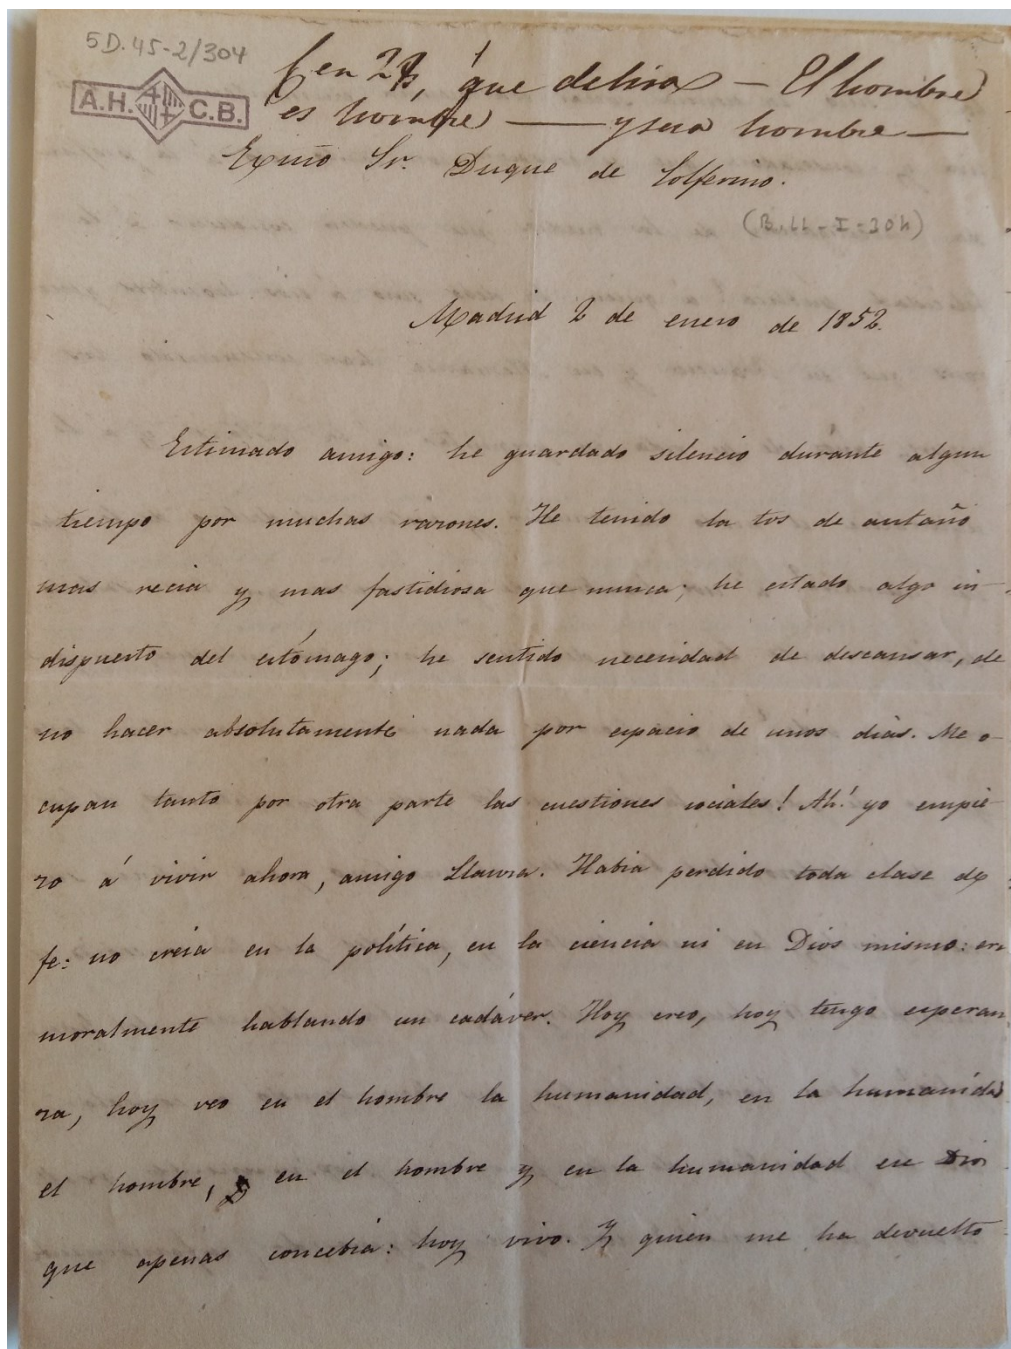 5D.45-2/304
A.H. C.B.
C en 28, que delira — El hombre
es hombre — y sera hombre —
Exmo Sr. Duque de Solferino.
(B.LL-I-304)
Madrid 2 de enero de 1852.
Estimado amigo: he guardado silencio durante algun
tiempo por muchas razones. He tenido la tos de antaño
mas recia y mas fastidiosa que nunca; he estado algo in-
dispuesto del estómago; he sentido necesidad de descansar, de
no hacer absolutamente nada por espacio de unos dias. Me o-
cupan tanto por otra parte las cuestiones sociales! Ah! yo empie-
zo á vivir ahora, amigo Llausa. Habia perdido toda clase de
fe: no creia en la política, en la ciencia ni en Dios mismo: era
moralmente hablando un cadáver. Hoy creo, hoy tengo esperan
za, hoy veo en el hombre la humanidad, en la humanidad
el hombre, y en el hombre y en la humanidad en Dios
que apenas concebia: hoy vivo. Y quien me ha devuelto